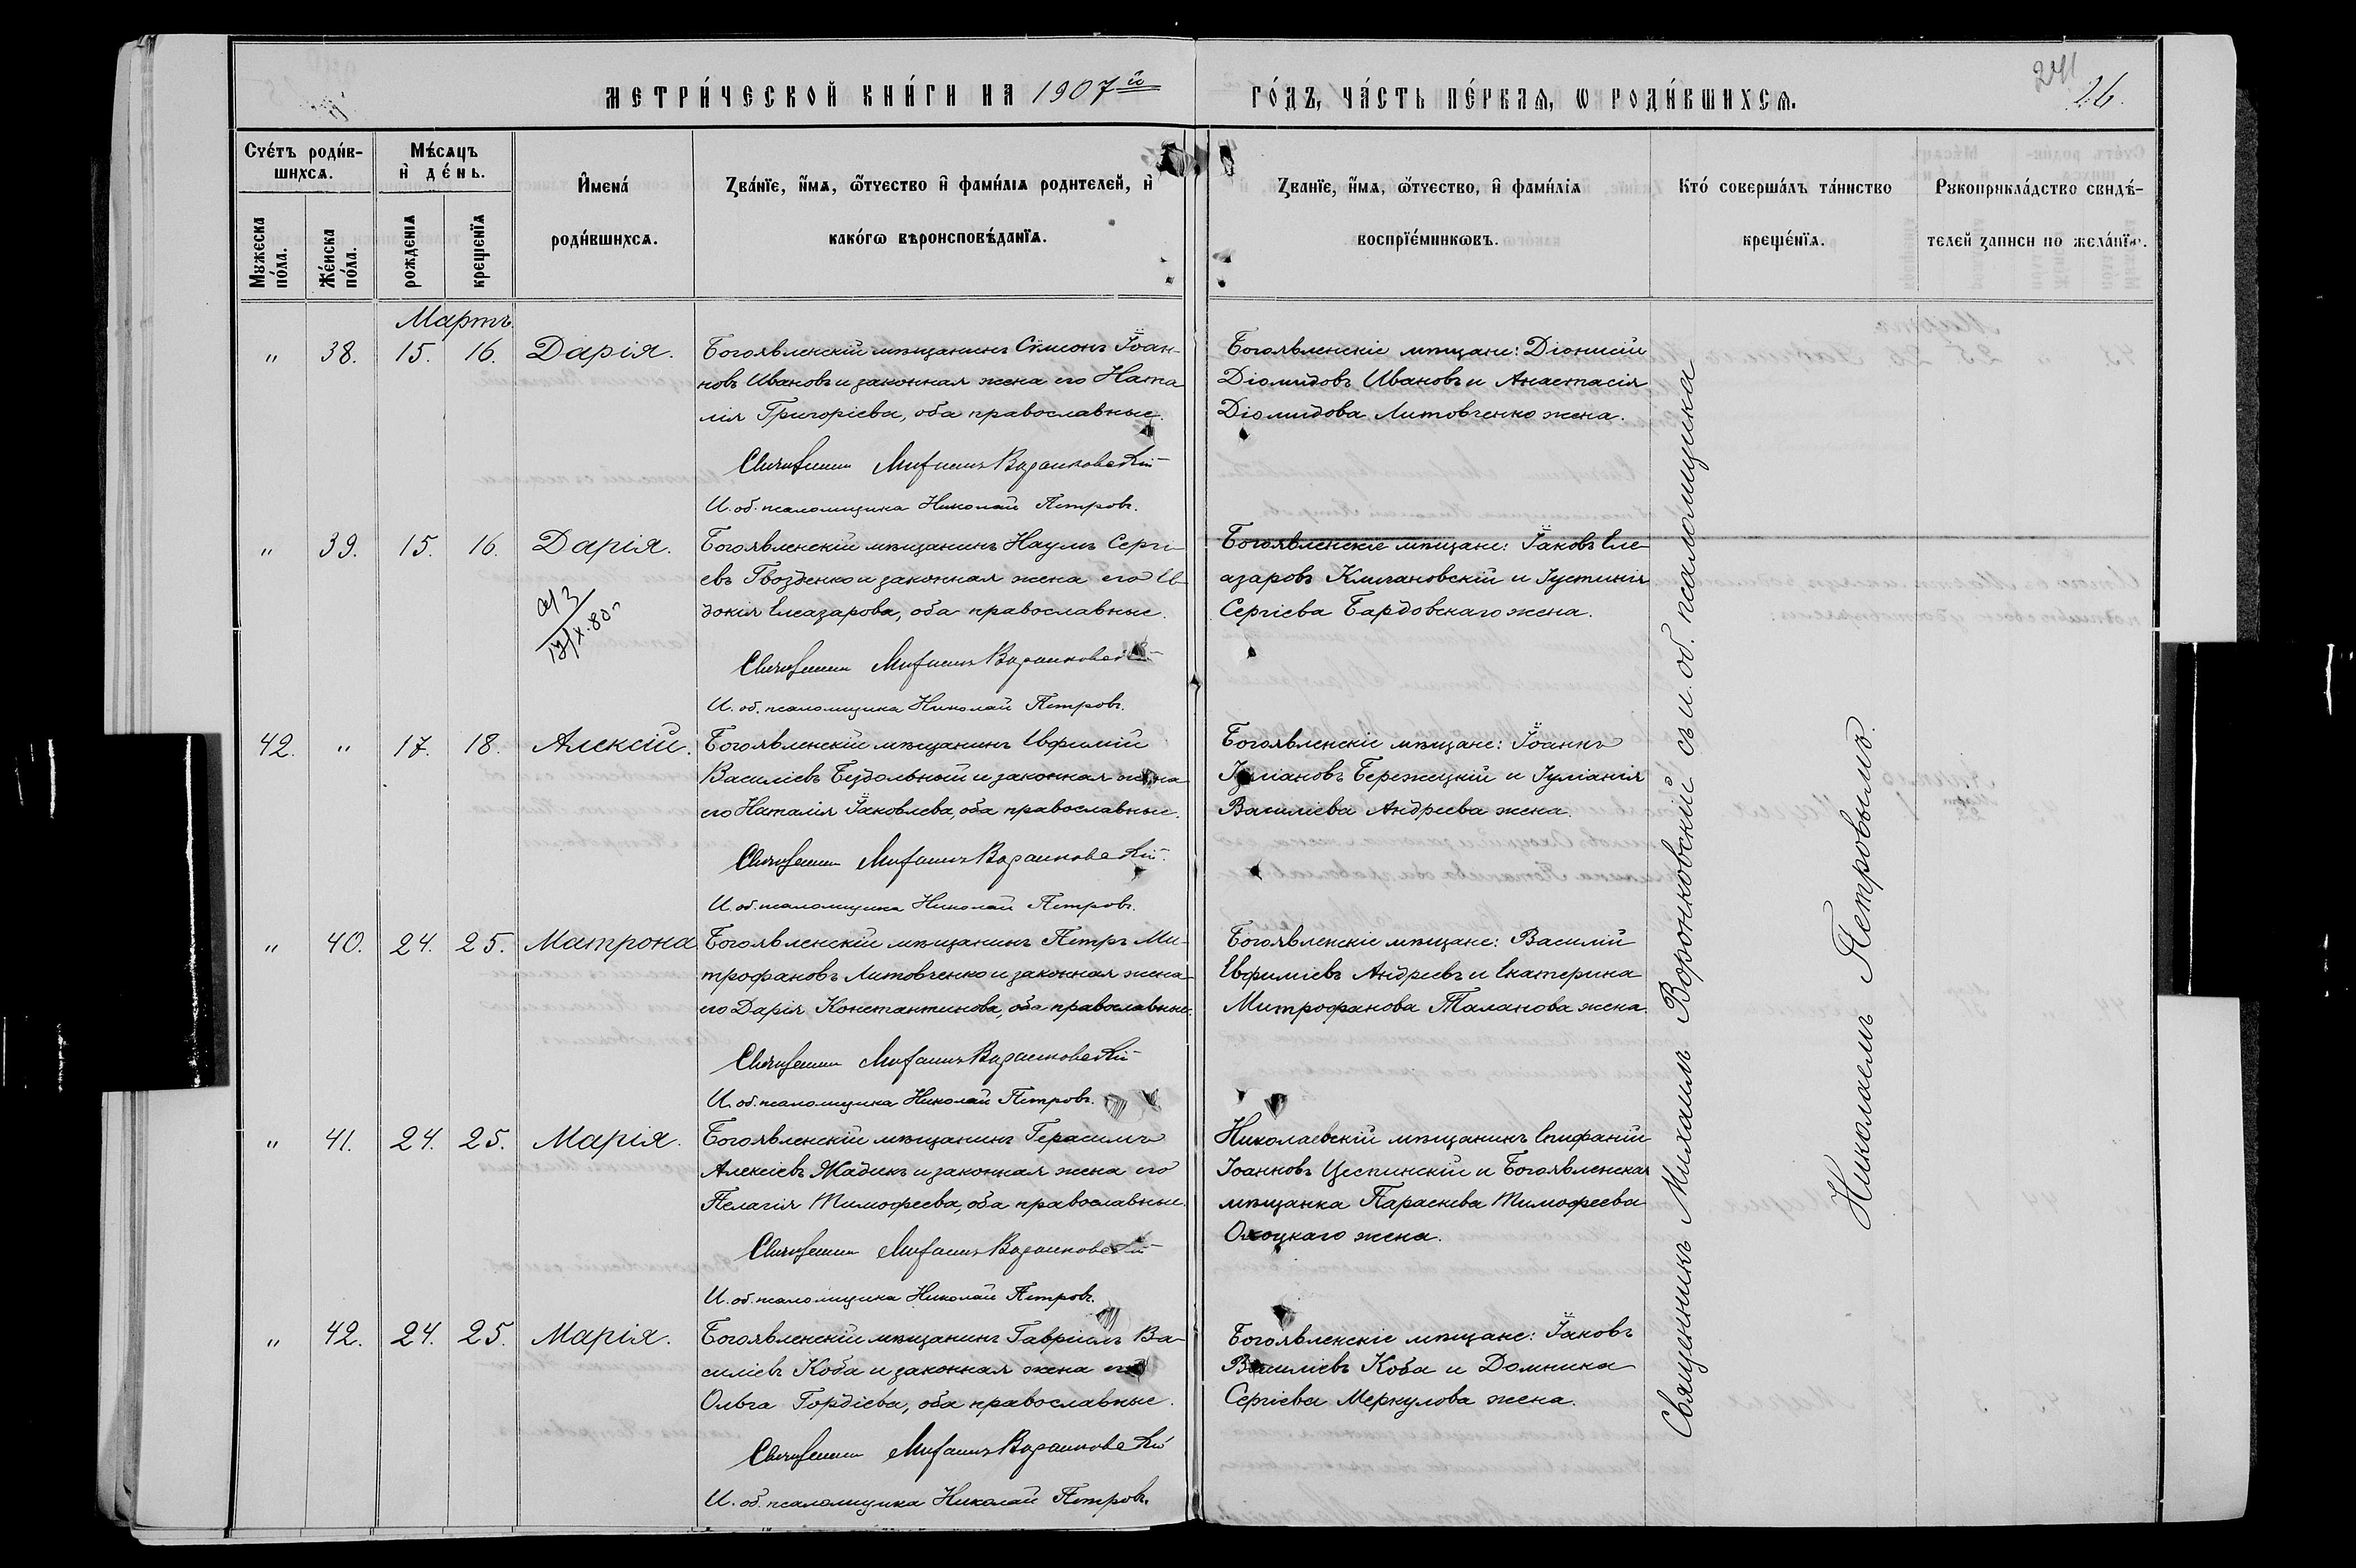 МЕТРИ́ЧЕСКОЙ КНИ́ГИ НА 1907й
ГО́ДЪ, ЧА́СТЬ ПЕ́РВАѦ, Ѡ РОДИ́ВШИХСѦ.
241
26.
Сче́тъ роди́в-
шихсѧ.
Мꙋжеска
по́ла.
Же́нска
по́ла.
Мѣ́сѧцъ
и҆ де́нь.
рожденїѧ
крещенїѧ
И҆мена́
роди́вшихсѧ.
Зва́нїе, и҆́мѧ, ѻ҆́тчество и҆ фами́лїѧ родителей, и҆
како́гѡ вѣроисповѣ́данїѧ.
Званїе, и҆́мѧ, ѻ҆́тчество, и҆ фами́лїѧ
воспрїе́мникѡвъ.
Кто́ соверша́лъ та́инство
креще́нїѧ.
Рꙋкоприкла́дство свидѣ́-
телей записи по жела́нїю.
Мартъ
" 38. 15. 16. Дарія.
Богоявленскій мѣщанинъ Сѵмеонъ Іоан-
новъ Ивановъ и законная жена его Ната
лія Григоріева, оба православные.
Священникъ Михаилъ Воронковскій
И. об. псаломщика Николай Петровъ.
Богоявленскіе мѣщане: Діонисій
Діомидовъ Ивановъ и Анастасія
Діомидова Литовченко жена.
" 39. 15. 16. Дарія.
Богоявленскій мѣщанинъ Наумъ Серги-
евъ Гвозденко и законная жена его Ев-
докія Елеазарова, оба православные.
Священникъ Михаилъ Воронковскій
И. об. псаломщика Николай Петровъ.
Богоявленскіе мѣщане: Іаковъ Еле-
азаровъ Климановскій и Іустинія
Сергіева Бардовскаго жена.
42. " 17. 18. Алексій.
Богоявленскій мѣщанинъ Евфимій
Василіевъ Бездольный и законная жена
его Наталія Іаковлева, оба православные.
Священникъ Михаилъ Воронковскій
И. об. псаломщика Николай Петровъ.
Богоявленскіе мѣщане: Іоаннъ
Іуліановъ Бережецкій и Іуліанія
Василіева Андреева жена.
" 40. 24. 25. Матрона
Богоявленскій мѣщанинъ Петръ Ми-
трофановъ Литовченко и законная жена
его Дарія Константинова, оба православные.
Священникъ Михаилъ Воронковскій
И. об. псаломщика Николай Петровъ.
Богоявленскіе мѣщане: Василій
Евфиміевъ Андреевъ и Екатерина
Митрофанова Таланова жена.
" 41. 24. 25. Марія.
Богоявленскій мѣщанинъ Герасимъ
Алексіевъ Жадикъ и законная жена его
Пелагія Тимофеева, оба православные.
Священникъ Михаилъ Воронковскій
И. об. псаломщика Николай Петровъ.
Николаевскій мѣщанинъ Епифаній
Іоанновъ Цеспинскій и Богоявленская
мѣщанка Параскева Тимофеева
Охоцкаго жена.
" 42. 24. 25. Марія.
Богоявленскій мѣщанинъ Гавріилъ Ва-
силіевъ Коба и законная жена его
Ольга Гордіева, оба православные.
Священникъ Михаилъ Воронковскій
И. об. псаломщика Николай Петровъ.
Богоявленскіе мѣщане: Іаковъ
Василіевъ Коба и Домника
Сергіева Меркулова жена.
Священникъ Михаилъ Воронковскій съ и. об. псаломщика
Николаемъ Петровымъ.